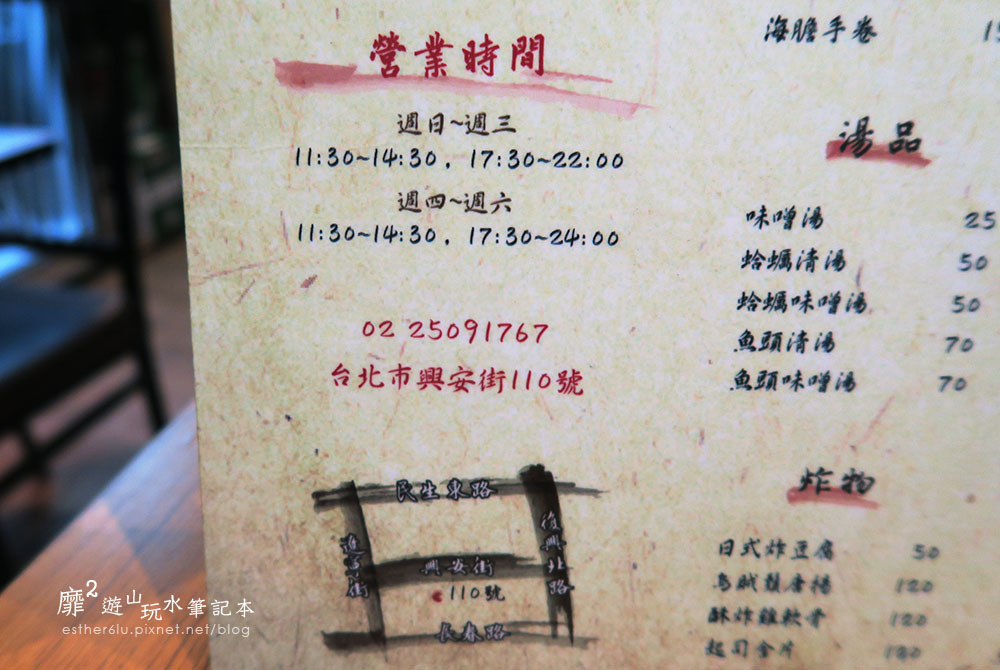 營業時間
週日~週三
11:30~14:30 , 17:30~22:00
週四~週六
11:30~14:30 , 17:30~24:00
02 25091767
台北市興安街110號
民生東路
復興北路
興安街
110號
長春路
海膽手卷
湯品
味噌湯 25
蛤蠣清湯 50
蛤蠣味噌湯 50
魚頭清湯 70
魚頭味噌湯 70
炸物
日式炸豆腐 50
烏賊鬚唐揚 120
酥炸雞軟骨 120
起司金片
靡2遊山玩水筆記本
esther6lu.pixnet.net/blog